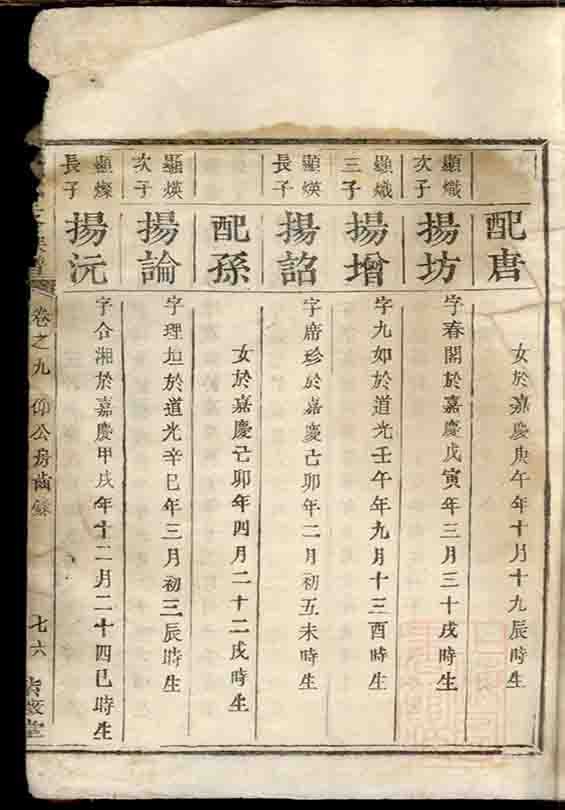 配唐
女於嘉慶庚午年十月十九辰時生
顯熾
次子
揚坊
字春閣於嘉慶戊寅年三月三十戌時生
顯熾
三子
揚增
字九如於道光壬午年九月十三酉時生
顯煐
長子
揚詔
字席珍於嘉慶己卯年二月初五未時生
配孫
女於嘉慶己卯年四月二十二戌時生
顯煐
次子
揚論
字理垣於道光辛巳年三月初三辰時生
顯燦
長子
揚沅
字合湘於嘉慶甲戌年十二月二十四巳時生
卷之九
仰公房齒錄
七六